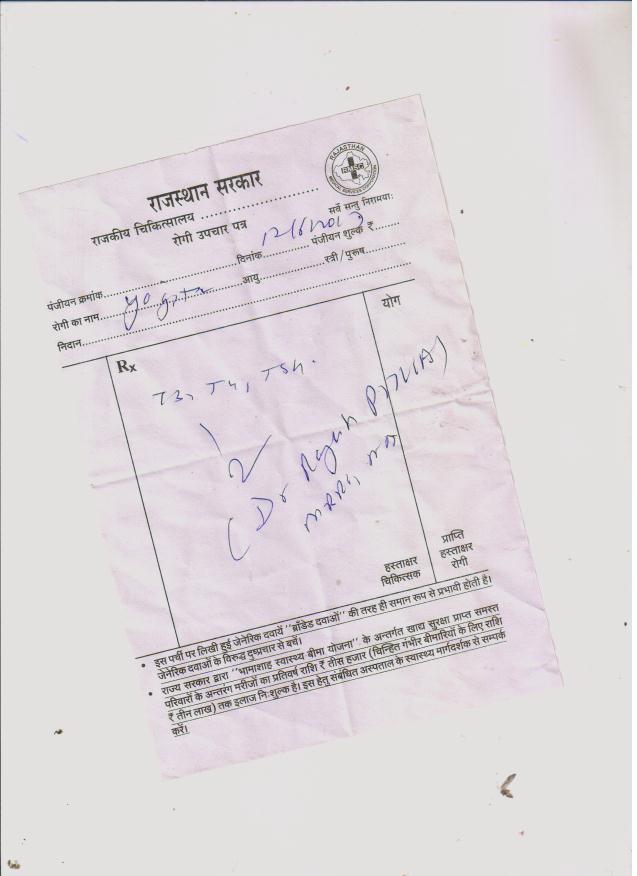 RAJASTHAN
MEDICAL SERVICES CORPORATION
राजस्थान सरकार
सर्वे सन्तु निरामयाः
राजकीय चिकित्सालय ..............................
रोगी उपचार पत्र
पंजीयन क्रमांक.................................दिनांक............... पंजीयन शुल्क ₹.......
रोगी का नाम.... Yogita ..........आयु.....................स्त्री/पुरूष.............
निदान................................................
Rx
योग
T3, T4, TSH.
(Dr Rajesh
हस्ताक्षर
चिकित्सक
प्राप्ति
हस्ताक्षर
रोगी
• इस पर्ची पर लिखी हुई जेनेरिक दवायें "ब्रांडेड दवाओं" की तरह ही समान रूप से प्रभावी होती है।
जेनेरिक दवाओं के विरुद्ध दुष्प्रचार से बचें।
• राज्य सरकार द्वारा "भामाशाह स्वास्थ्य बीमा योजना" के अन्तर्गत खाद्य सुरक्षा प्राप्त समस्त
परिवारों के अन्तरंग मरीजों का प्रतिवर्ष राशि ₹ तीस हजार (चिन्हित गंभीर बीमारियों के लिए राशि
₹ तीन लाख) तक इलाज निःशुल्क है। इस हेतु संबंधित अस्पताल के स्वास्थ्य मार्गदर्शक से सम्पर्क
करें।